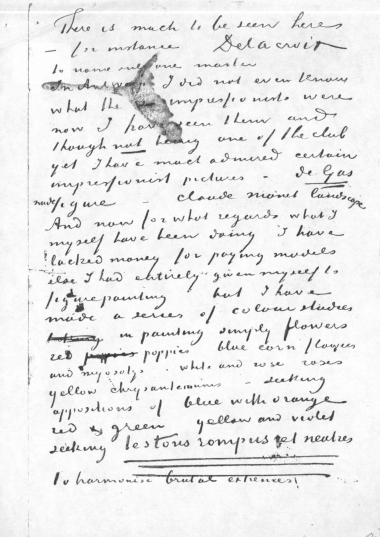 There is much to be seen here
- for instance Delacroix
to name only one master
In Antwerp I did not even know
what the impressionists were
now I have seen them and
though not being one of the club
yet I have much admired certain
impressionist pictures - de Gas
nude figure - claude monet landscape
And now for what regards what I
myself have been doing I have
lacked money for paying models
else I had entirely given myself to
figure painting but I have
made a series of colour studies
in painting simply flowers
red poppies poppies blue corn flowers
and myosotys - white and rose roses
yellow chrysantemums - seeking
oppositions of blue with orange
red & green yellow and violet
seeking les tons rompus et neutres
to harmonise brutal extremes